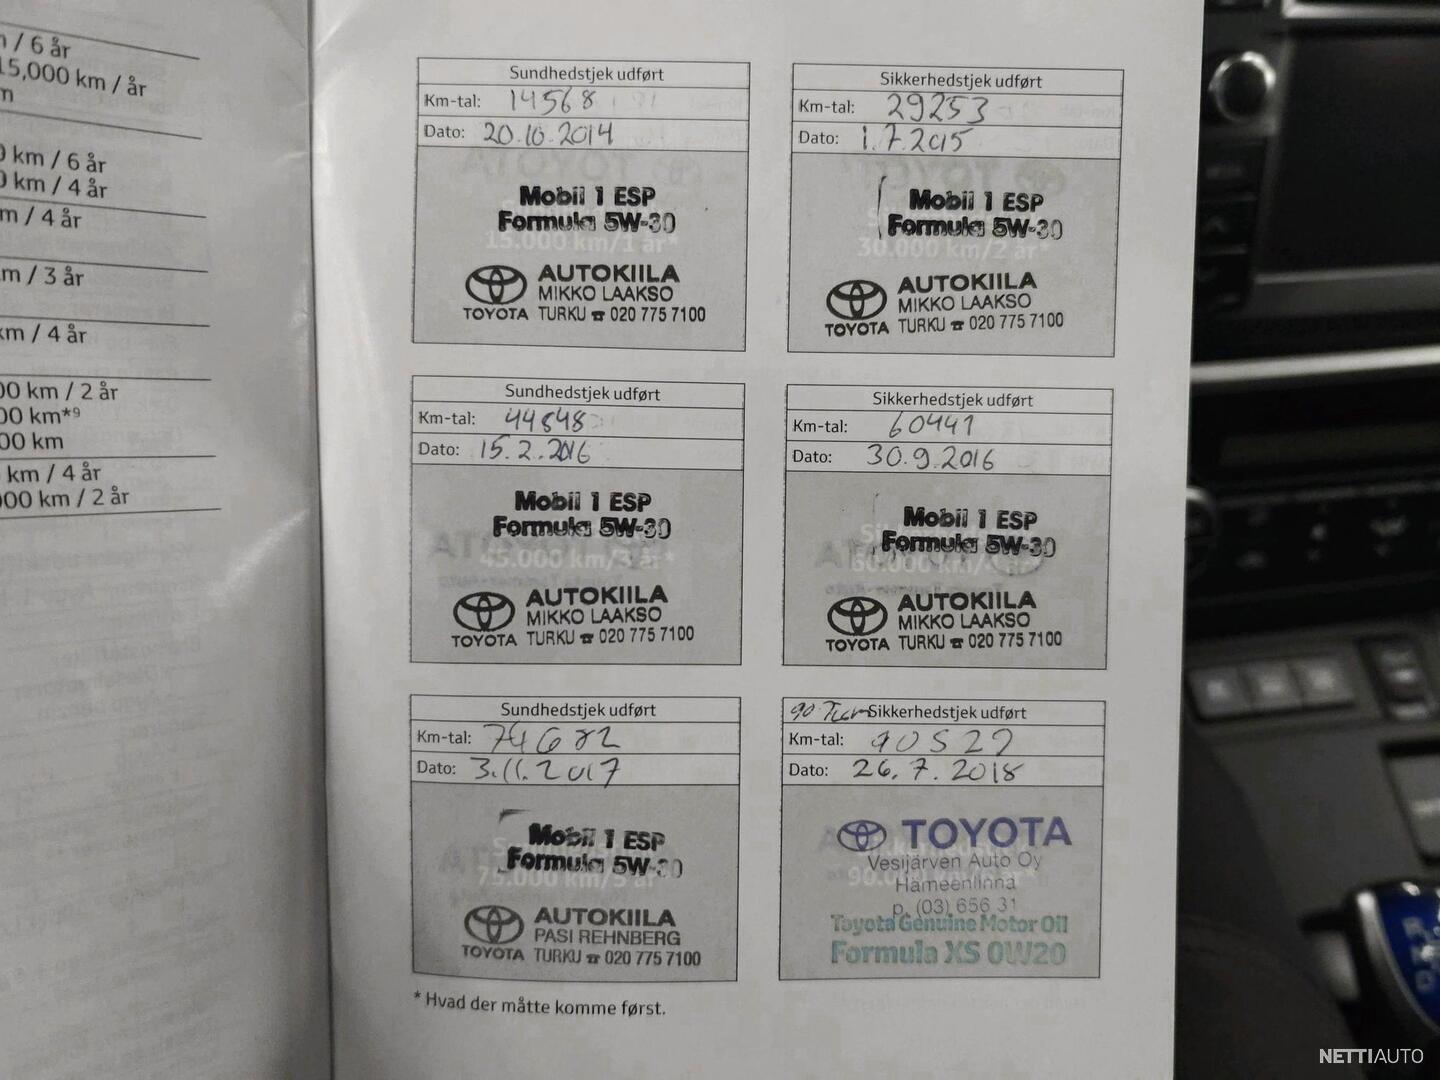 / 6 år
15,000 km / år
m
0 km / 6 år
0 km / 4 år
m / 4 år
m / 3 år
km / 4 år
00 km / 2 år
00 km*⁹
00 km
km / 4 år
000 km / 2 år
Sundhedstjek udført
Km-tal: 14568
Dato: 20.10.2014
Mobil 1 ESP
Formula 5W-30
15.000 km/1 år*
AUTOKIILA
MIKKO LAAKSO
TOYOTA TURKU ☎ 020 775 7100
Sikkerhedstjek udført
Km-tal: 29253
Dato: 1.7.2015
Mobil 1 ESP
Formula 5W-30
30.000 km/2 år*
AUTOKIILA
MIKKO LAAKSO
TOYOTA TURKU ☎ 020 775 7100
Sundhedstjek udført
Km-tal: 44848
Dato: 15.2.2016
Mobil 1 ESP
Formula 5W-30
45.000 km/3 år*
AUTOKIILA
MIKKO LAAKSO
TOYOTA TURKU ☎ 020 775 7100
Sikkerhedstjek udført
Km-tal: 60441
Dato: 30.9.2016
Mobil 1 ESP
Formula 5W-30
AUTOKIILA
MIKKO LAAKSO
TOYOTA TURKU ☎ 020 775 7100
Sundhedstjek udført
Km-tal: 74682
Dato: 3.11.2017
Mobil 1 ESP
Formula 5W-30
75.000 km/5 år
AUTOKIILA
PASI REHNBERG
TOYOTA TURKU ☎ 020 775 7100
90 Sikkerhedstjek udført
Km-tal: 90527
Dato: 26.7.2018
TOYOTA
Vesijärven Auto Oy
90.000 km/6 år*
Hämeenlinna
p. (03) 656 31
Toyota Genuine Motor Oil
Formula XS 0W20
* Hvad der måtte komme først.
NETTIAUTO